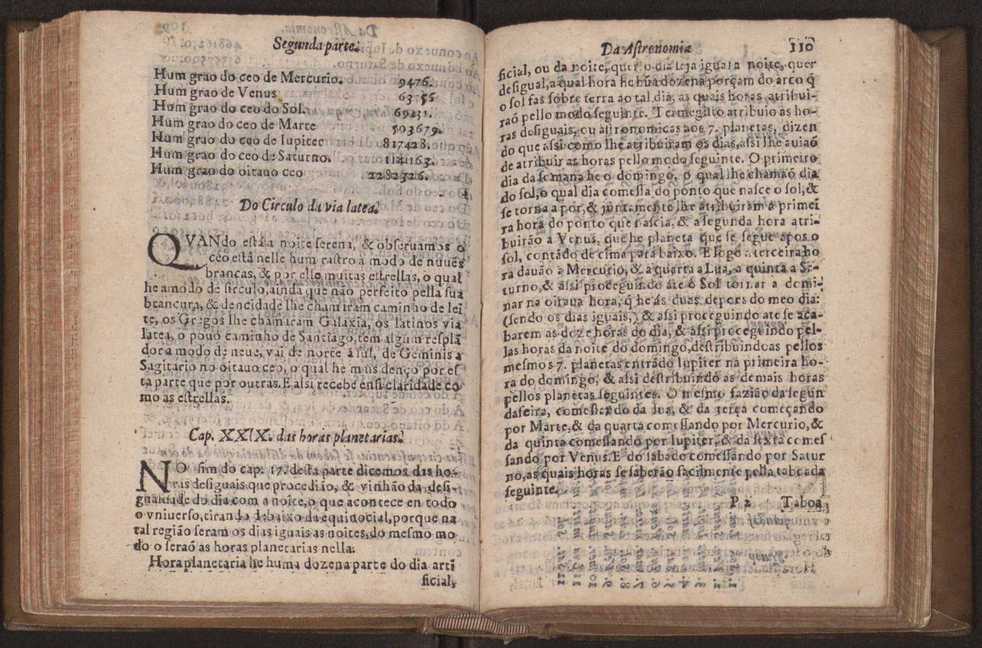 Segunda parte.
Hum grao do ceo de Mercurio. 9476.
Hum grao de Venus 6356
Hum grao do ceo do Sol. 69131.
Hum grao do ceo de Marte 503679.
Hum grao do ceo de Iupiter 817428.
Hum grao do ceo de Saturno. 1141163.
Hum grao do oitauo ceo 2282326.
Do Circulo da via latea.
QVANdo está a noite serena, & obseruamos o
ceo está nelle hum rastro a modo de nuués
brancas, & por elle muitas estrellas, o qual
he a modo de sirculo, ainda que não perfeito pella sua
brancura, & dencidade lhe chamaram caminho de lei
te, os Gregos lhe chamaram Galaxia, os latinos via
latea, o pouo caminho de Santiago, tem algum resplá
dor a modo de neue, vai de norte a sul, de Geminis a
Sagitario no oitauo ceo, o qual he mais denço por es
ta parte que por outras. E alsi recebe ensi claridade co
mo as estrellas.
Cap. XXIX. das horas planetarias.
NO fim do cap. 17. desta parte dicemos das ho-
ras desiguais que procedião, & vinhão da desi-
gualdade do dia com a noite, o que acontece en todo
o vniuerso, tirando debaixo da equinocial, porque na
tal região seram os dias iguais as noites, do mesmo mo
do o seraõ as horas planetarias nella.
Hora planetaria he huma dozena parte do dia arti
ficial,
Da Astronomia 110
ficial, ou da noite, quer o dia seja igual a noite, quer
desigual, a qual hora he húa dozena porçam do arco q̃
o sol fas sobre terra ao tal dia, as quais horas atribui-
raó pello modo seguinte. Temegisto atribuio as ho-
ras desiguais, ou astronomicas aos 7. planetas, dizen
do que assi como lhe atribuiram os dias, assi lhe auiaõ
de atribuir as horas pello modo seguinte. O primeiro
dia da semana he o domingo, o qual lhe chamaó dia
do sol, o qual dia comessa do ponto que nasce o sol, &
se torna a por, & juntamente lhe atribuiram a primei
ra hora do ponto que nascia, & a segunda hora atri-
buirão a Venus, que he planeta que se segue apos o
sol, contãdo de cima para baixo. E logo a terceira ho
ra dauão a Mercurio, & a quarta a Lua, a quinta a Sa-
turno, & alsi proceguindo ate o Sol tornar a domi-
nar na oitaua hora, q̃ he ás duas depois do meo dia:
(sendo os dias iguais,) & assi proceguindo ate se aca-
barem as doze horas do dia, & assi proceguindo pel-
las horas da noite do domingo, destribuindoas pellos
mesmos 7. planetas entrãdo Iupiter na primeira ho-
ra do domingo, & alsi destribuindo as demais horas
pellos planetas seguintes. O mesmo fazião da segun
da feira, comessando da lua, & da terça começando
por Marte, & da quarta comessando por Mercurio, &
da quinta comessando por Iupiter, & da sexta comes
sando por Venus. E do sabado comessando por Satur
no, as quais horas se saberão facilmente pella taboada
seguinte.
P 2 Taboa